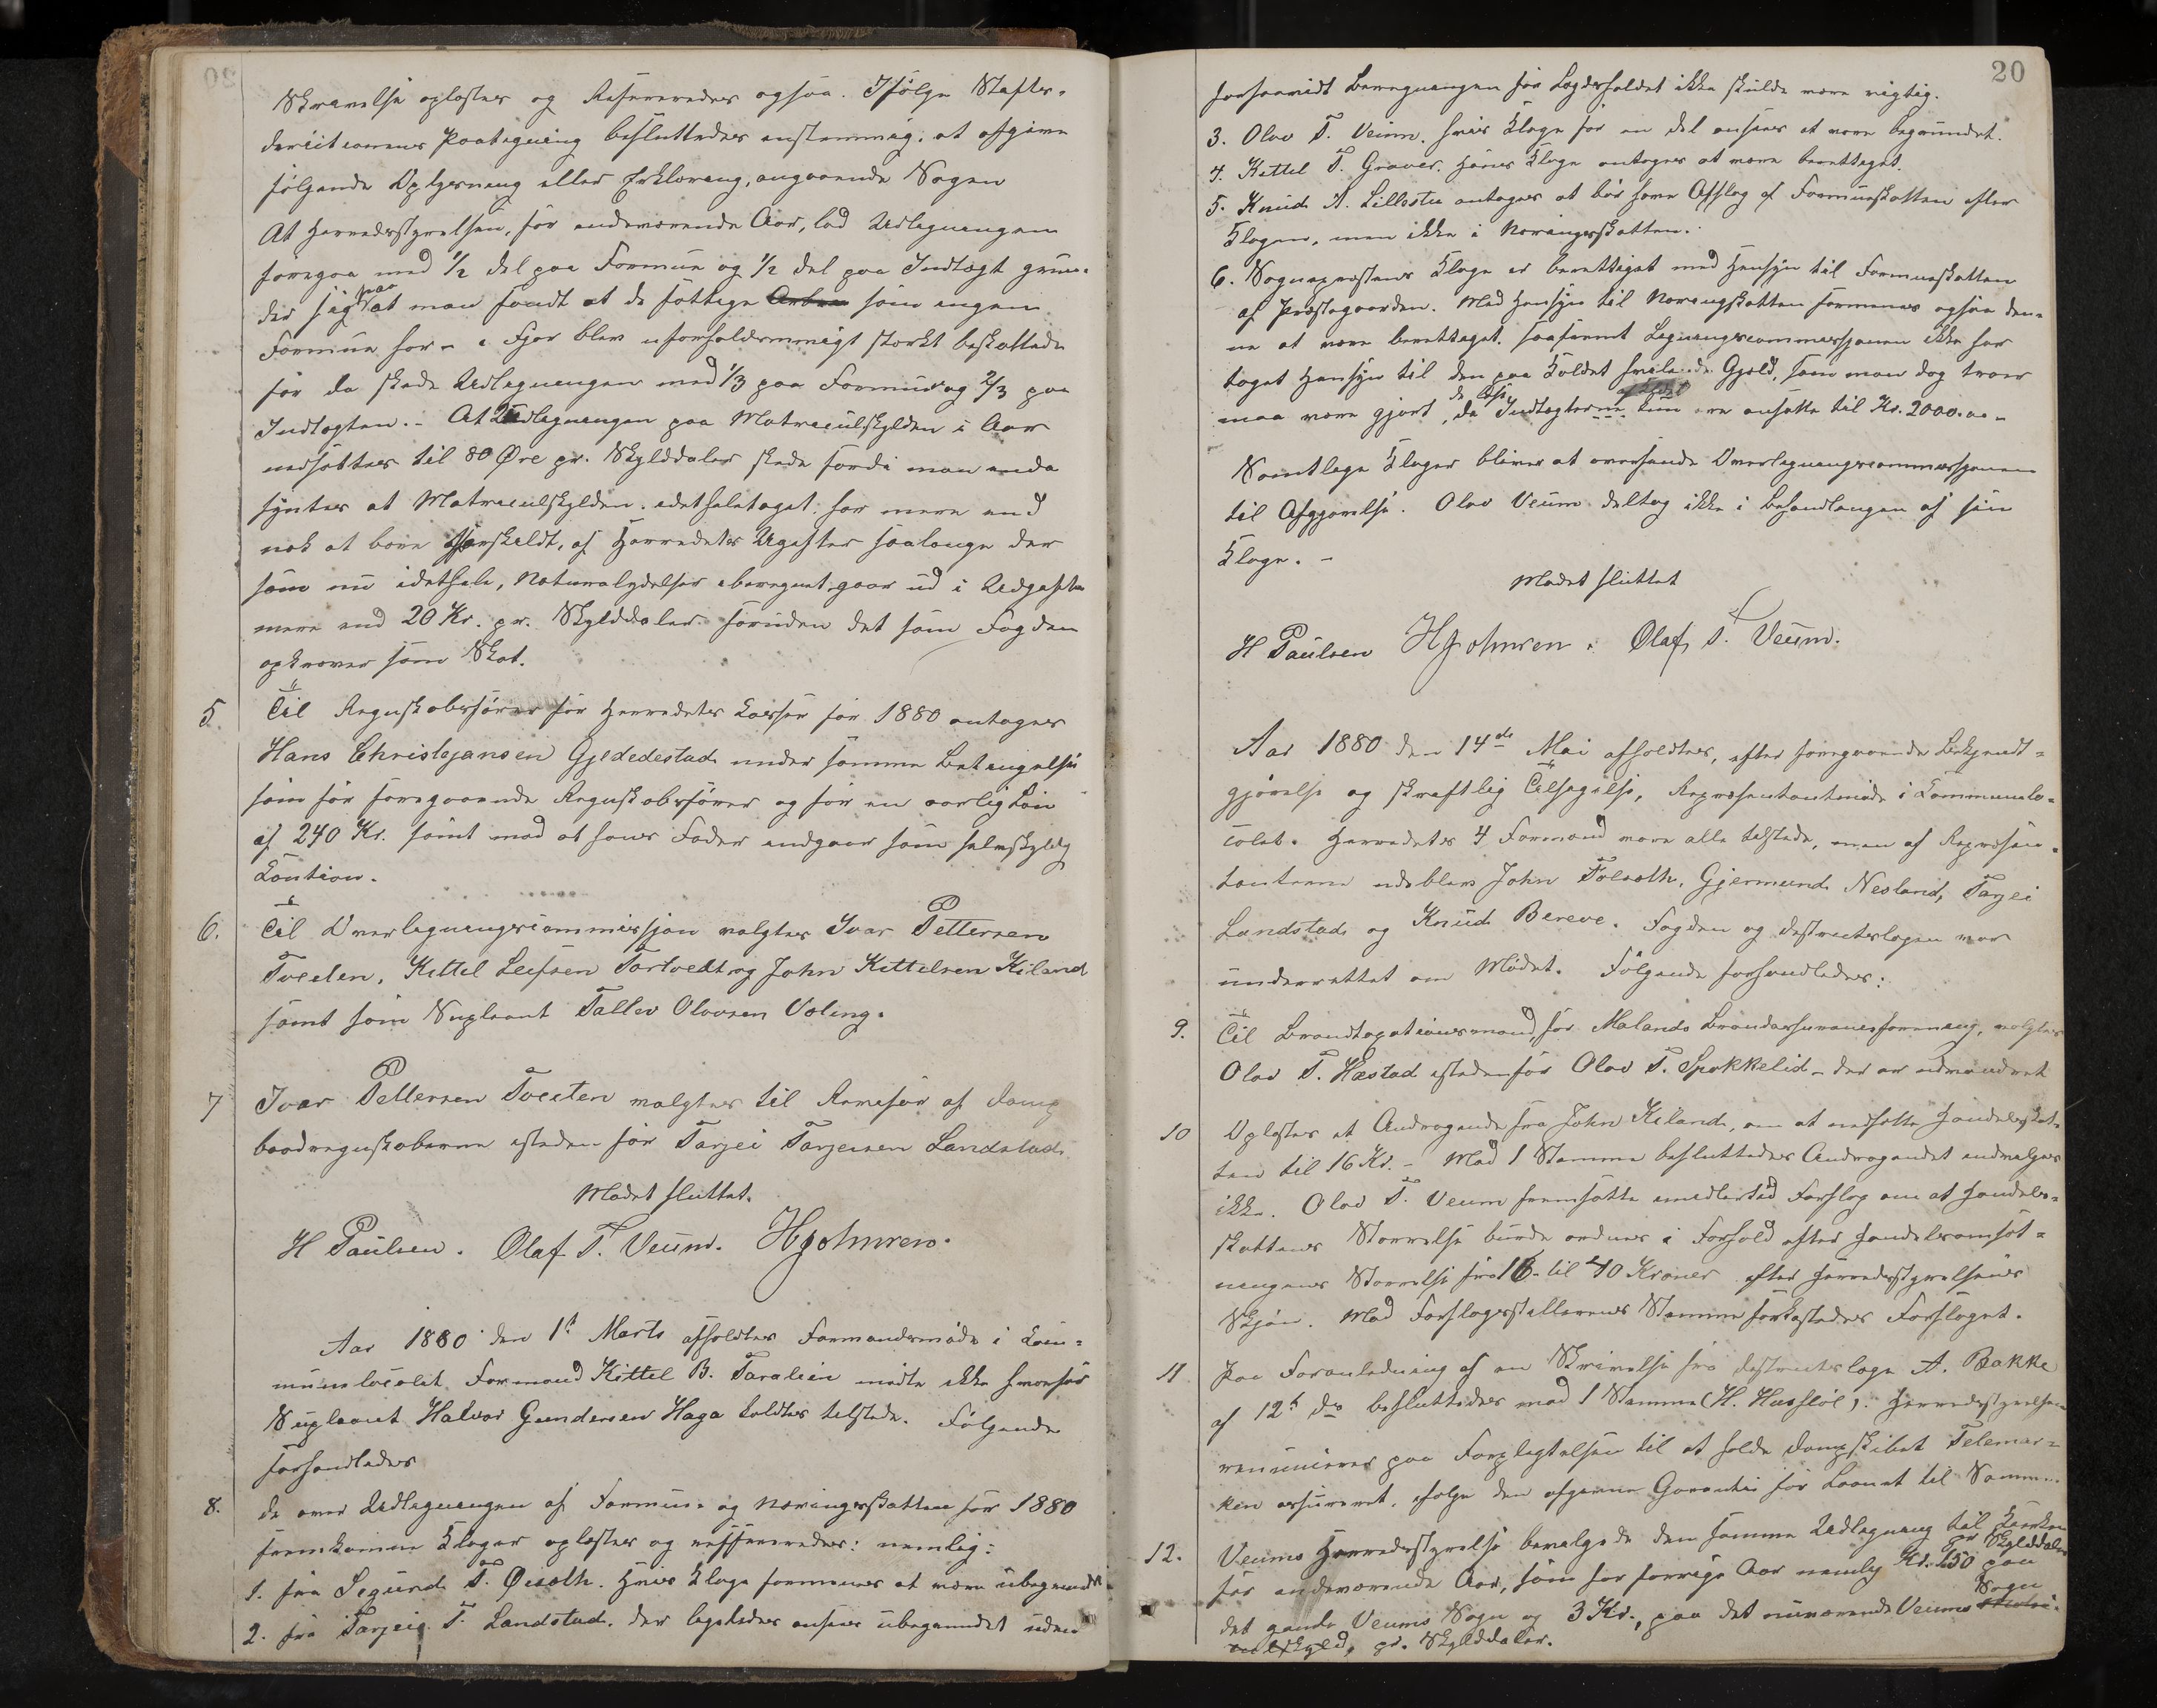 Skrivelse oplæstes og Refereredes ogsaa. Ifølge Stifts-
directionens Paategning besluttedes enstemmig, at afgive
følgende Oplysning eller Erklæring, angaaende Sagen
At Herredsstyrelsen, for indeværende Aar, lod Udligningen
foregaa med 1/2 del paa Formue og 1/2 del paa Indtægt grun-
der sig paa at man fandt at de fattige som ingen
Formue har - i Fjor blev uforholdsmæssigt stærkt beskattede
før da skede Udligningen med 1/3 paa Formue og 2/3 paa
Indtægten. - At Udligningen paa Matriculskylden i Aar
nedsattes til 80 Øre pr. Skylddaler skede fordi man enda
syntes at Matriculskylden, idetheletaget, har mere end
nok at bære af Herredets Utgifter saalænge der
som nu idethele, Naturalydelser iberegnet, gaar ud i Udgifter
mere end 20 Kr. pr. Skylddaler foruden det som Fogden
opkræver som Skat.
5 Til Regnskabsfører for Herredets Kasser for 1880 antages
Hans Christejansen Gjeldedestad under samme Betingelse
som for foregaaende Regnskabsfører og for en aarlig Løn
af 240 Kr. samt mod at hans Fader indgaar som selvskyldig
Caution.
6. Til Overligningscommissjon valgtes Ivar Pettersen
Tveiten, Kittel Leifsen Tortvedt og John Kittelsen Kiland
samt som Supleant Tallev Olavsen Voling.
7 Ivar Pettersen Tveiten valgtes til Revisor af Damp-
baadregnskaberne isteden for Tarjei Tarjeisen Landstad.
Mødet sluttet.
H Paulsen. Olaf T. Veum. HJohnsen.
Aar 1880 den 1ste Marts afholdtes Formandsmøde i Com-
munelocalet Formand Kittel B. Taraldlien mødte ikke hvorfor
Supleant Halvor Gundersen Haga holdtes tilstede. Følgende
forhandledes
8. De over Udligningen af Formue- og Næringsskatten for 1880
fremkomne Klager oplæstes og reffereredes: nemlig:
1. fra Segurd T. Øisoth. Hvis Klage formenes at være ubegrundet
2. fra Tarjeig T. Landstad. der ligeledes ansees ubegrundet uden
20
forsaavidt Beregningen for Lægdsholdet ikke skulde være rigtig.
3. Olav T. Veum. hvis Klage for en del ansees at være begrundet.
4. Kettel T. Graver. Hans Klage antages at være berettiget.
5. Knud A. Lillestu antages at bør have Afslag af Formueskatten efter
Klagen, men ikke i Næringsskatten.
6. Sognepræstens Klage er berettiget med Hensyn til Formueskatten
af Præstegaarden. Med Hensyn til Næringsskatten formenes ogsaa den-
ne at være berettiget. saafremt Ligningscommissjonen ikke har
taget Hensyn til den paa Kaldet hvilende Gjæld, som man dog troer
maa være gjort, da Indtægterne kun ere ansatte til Kr. 2000.00 -
Samtlige Klager bliver at oversende Overligningscommissjonen
til Afgjørelse. Olav Veum deltog ikke i Behandlingen af sin
Klage. -
Mødet sluttet
H Paulsen HJohnsen. Olaf T. Veum.
Aar 1880 den 14de Mai afholdtes, efter foregaaende Bekjendt-
gjørelse og skriftlig Tilsigelse, Repræsentantmøde i Communelo-
calet. Herredets 4 Formænd vare alle tilstede, men af Repræsen-
tanterne udeblev John Folsoth, Gjermund Nesland, Tarjei
Landstad og Knud Bereve. Fogden og Destrictslægen var
underrettet om Mødet. Følgende forhandledes:
9. Til Brandtaxationsmand for Molands Brandassuranceforening, valgtes
Olav T. Hæstad istedenfor Olav T. Spokkelid - der er udvandret
10 Oplæstes et Andragende fra John Kiland, om at nedsætte Handelsskat-
ten til 16 Kr. - Mod 1 Stemme besluttedes Andragendet indvilges
ikke. Olav T. Veum fremsatte imidlertid Forslag om at Handels-
skattens Størrelse burde ordnes i Forhold efter Handelsomsæt-
ningens Størrelse fra 16 til 40 Kroner efter Herredsstyrelsens
Skjøn. Mod Forslagsstillerens Stemme forkastedes Forslaget.
11 Paa Foranledning af en Skrivelse fra Destrictslæge A. Bakke
af 12te ds besluttedes mod 1 Stemme (H. Husstøl): Herredsstyrelsen
renuncerer paa Forpligtelsen til at holde Dampskibet Telemar-
ken assureret, ifølge den afgivne Garanti for Laanet til Samme.
12. Veums Herredsstyrelse bevilgede den samme Udligning til Kirken
for indeværende Aar, som for forrige Aar nemlig Kr. 1.50 pr Skylddaler paa
det gamle Veums Sogn og 3 Kr., paa det nuværende Veums Sogn
pr. Skylddaler.